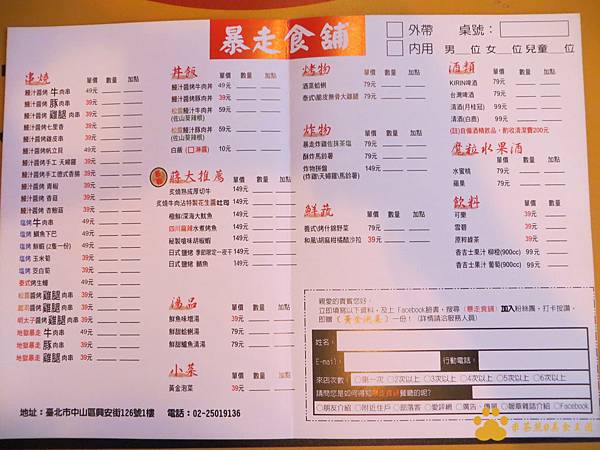 暴走食舖
外帶 桌號：
內用 男 位 女 位 兒童 位
串燒 單價 數量 加點
鰻汁醬烤 牛肉串 49元
鰻汁醬烤 豚肉串 39元
鰻汁醬烤 雞腿肉串 39元
鰻汁醬烤七里香 39元
鰻汁醬烤雞皮串 39元
鰻汁醬烤帆立貝 49元
鰻汁醬烤手工 天婦羅 39元
鰻汁醬烤手工德式香腸 39元
鰻汁醬烤 青椒 39元
鰻汁醬烤 香菇 39元
鰻汁醬烤 杏鮑菇 39元
塩烤 牛肉串 49元
塩烤 鯛魚下巴 49元
塩烤 鮮蝦 (2隻一份) 39元
塩烤 玉米筍 39元
塩烤 茭白筍 39元
泰式烤生蠔 49元
松露塩烤 雞腿肉串 49元
起司塩烤 雞腿肉串 49元
明太子醬烤 雞腿肉串 49元
地獄暴走 牛肉串 49元
地獄暴走 豚肉串 39元
地獄暴走 雞腿肉串 39元
丼飯 單價 數量 加點
鰻汁醬烤牛肉丼 49元
鰻汁醬烤豚肉丼 39元
松露鰻汁牛肉丼 59元
(佐山葵辣根)
松露鰻汁豚肉丼 59元
(佐山葵辣根)
白飯 (□淋醬) 10元
蔣太推薦 單價 數量 加點
炙燒熟成厚切牛 149元
炙燒牛肉沾特製花生醬吐司 149元
極鮮/深海大魷魚 149元
四川麻辣水煮烤魚 149元
秘製嗆味胡椒蝦 149元
日式鹽烤 季節限定一夜干 149元
日式鹽烤 鯖魚 149元
湯品 單價 數量 加點
鮮魚味增湯 39元
鮮甜蛤蜊湯 79元
鮮甜鱸魚清湯 79元
小菜 單價 數量 加點
黃金泡菜 39元
烤物 單價 數量 加點
酒蒸蛤蜊 79元
泰式/脆皮無骨大雞腿 79元
炸物 單價 數量 加點
暴走炸雞佐抹茶塩 79元
酥炸馬鈴薯 79元
炸物拼盤 149元
(炸雞\天婦羅\馬鈴薯)
鮮蔬 單價 數量 加點
義式/烤什錦野菜 79元
和風/胡麻柑橘醋沙拉 39元
酒類 單價 數量 加點
KIRIN啤酒 79元
台灣啤酒 79元
清酒(月桂冠) 99元
清酒(白鹿) 99元
(註)自備酒精飲品，酌收清潔費200元
魔粒水果酒 單價 數量 加點
水蜜桃 79元
蘋果 79元
飲料 單價 數量 加點
可樂 39元
雪碧 39元
原粹綠茶 39元
香吉士果汁 柳橙(900cc) 99元
香吉士果汁 葡萄(900cc) 99元
親愛的貴賓您好，
立即填寫以下資料，及上 Facebook臉書，搜尋（暴走食舖）加入粉絲團，打卡按讚，
即贈（黃金泡菜）一份！（詳情請洽服務人員）
姓名：
E-mail： 行動電話：
來店次數：○第一次 ○2次以上 ○3次以上 ○4次以上 ○5次以上 ○6次以上
請問您是如何得知暴走食舖餐廳的呢?
○朋友介紹 ○附近住戶 ○部落客 ○愛評網 ○廣告、傳單 ○報章雜誌介紹 ○Facebook
地址：臺北市中山區興安街126號1樓 電話：02-25019136